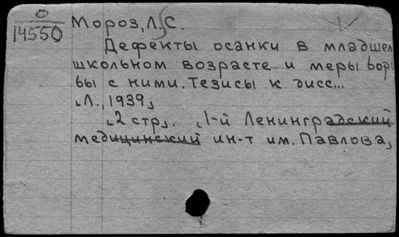 0
14550
Мороз, Л. С.
Дефекты осанки в младшем
школьном возрасте и меры борь
бы с ними. Тезисы к дисс...
[Л., 1939]
[2 стр]. [1-й Ленинградский
медицинский ин-т им. Павлова]